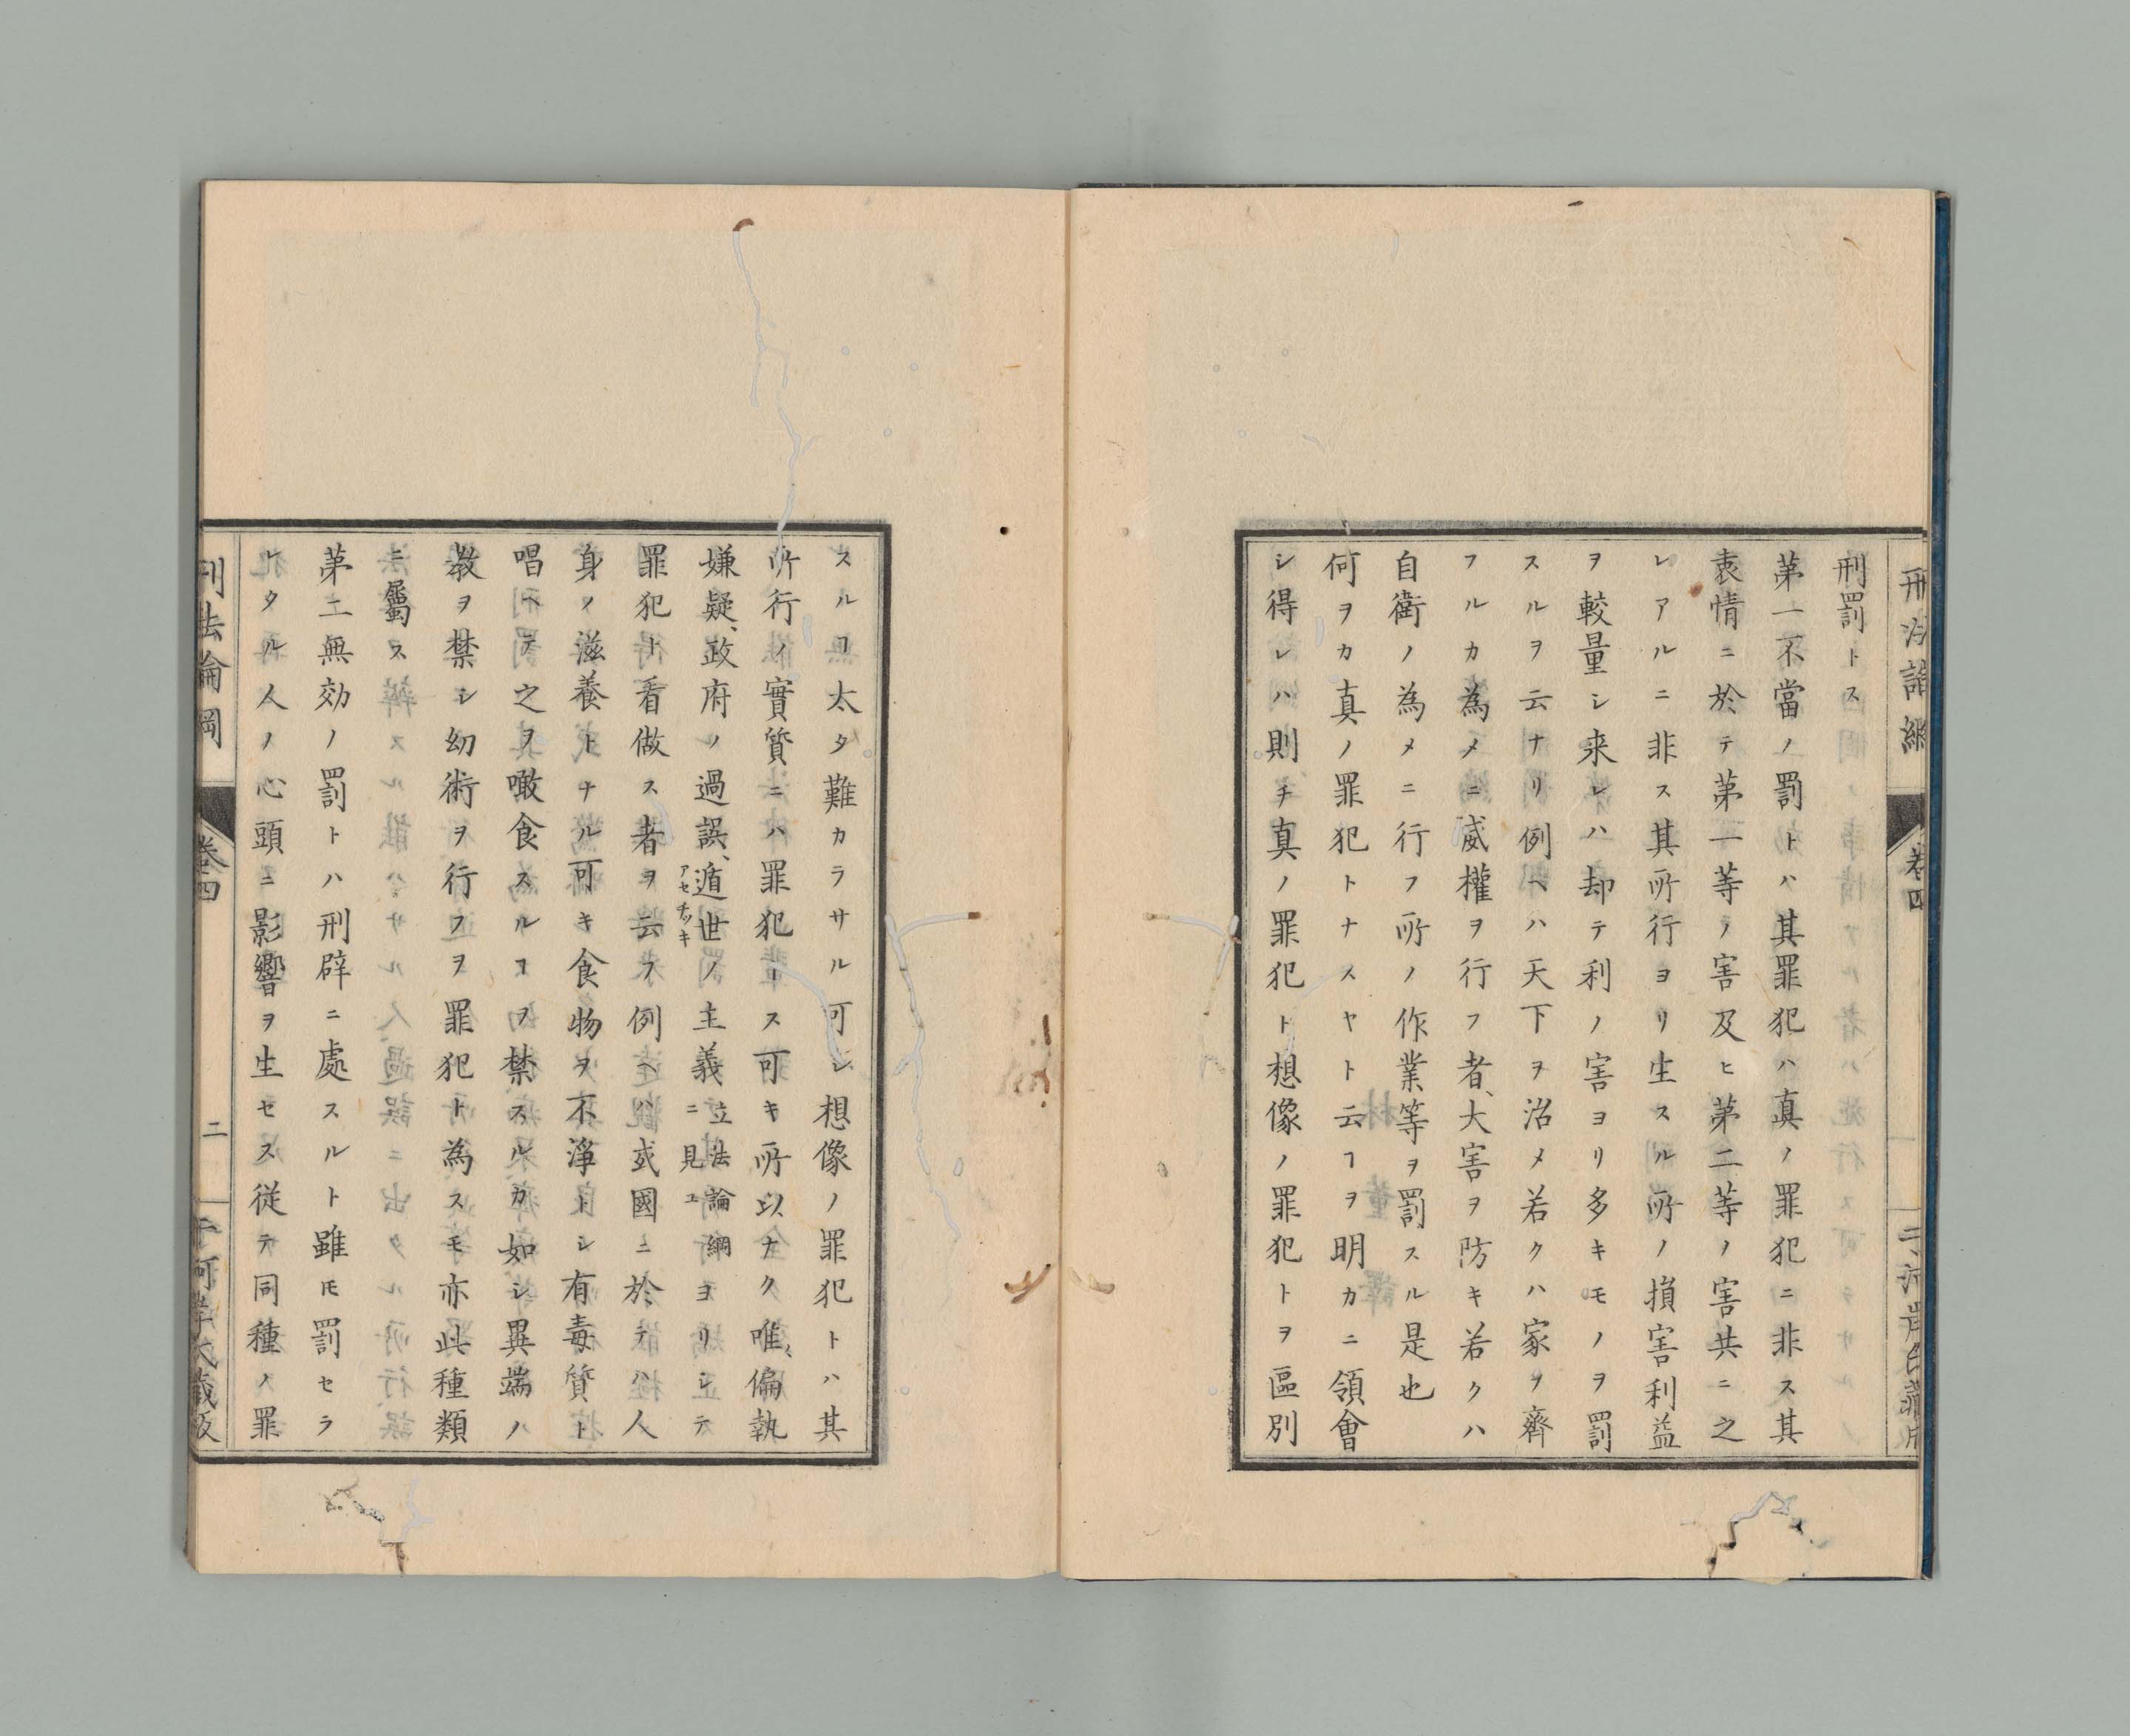 刑罰トス
第一不當ノ罰トハ其罪犯ハ真ノ罪犯ニ非ス其
衷情ニ於テ第一等ノ害及ヒ第二等ノ害共ニ之
レアルニ非ス其所行ヨリ生スル所ノ損害利益
ヲ較量シ来レハ却テ利ノ害ヨリ多キモノヲ罰
スルヲ云ナリ例ヘハ天下ヲ治メ若クハ家ヲ齊
フルカ為メニ威權ヲ行フ者、大害ヲ防キ若クハ
自衛ノ為メニ行フ所ノ作業等ヲ罰スル是也
何ヲカ真ノ罪犯トナスヤト云フヲ明カニ領會
シ得レハ則チ真ノ罪犯ト想像ノ罪犯トヲ區別
スルヿ太タ難カラサル可シ想像ノ罪犯トハ其
所行ノ實質ニハ罪犯トス可キ所以ナク唯、偏執
嫌疑、政府ノ過誤、遁世ノ主義立法論綱ニ見ユヨリシテ
アセチッキ
罪犯ト看做ス者ヲ云フ例ヘハ或國ニ於テハ人
身ノ滋養トナル可キ食物ヲ不淨トシ有毒質ト
唱ヘテ之ヲ噉食スルヿヲ禁スルカ如シ異端ノ
教ヲ禁シ幻術ヲ行フヲ罪犯ト為スモ亦此種類
ニ屬ス
第二無効ノ罰トハ刑辟ニ處スルト雖モ罰セラ
レタル人ノ心頭ニ影響ヲ生セス従テ同種ノ罪
刑法論綱
卷四
二